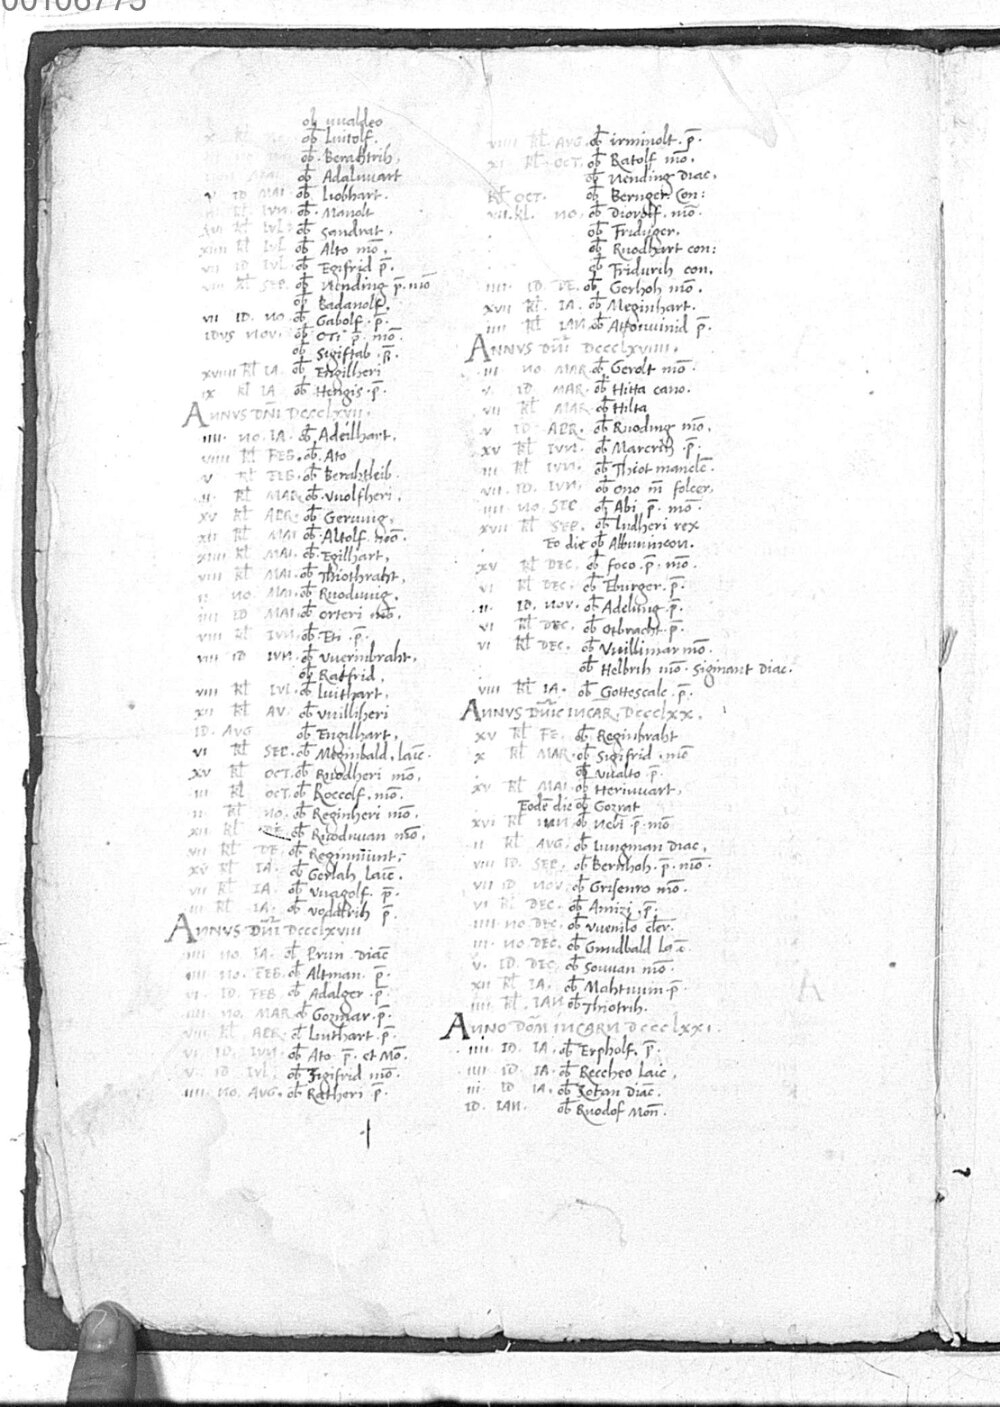 00106775
ob̄ vualdeo
x kl̄ ob̄ Luitolf.
ob̄. Berahtrih,
ob̄ Adaluuart
v ID MAI. ob̄ Liobhart.
kl̄ IVN. ob̄. Manolt
kl̄ IVL. ob̄ Sandrat,
xiiii kl̄ IVL ob̄ Alto mō,
vii ID IVL. ob̄ Egifrid p̄.
kl̄ SEP. ob̄ Nending p̄. mō
ob̄ Kadanolf.
vii ID. NO. ob̄ Gabolf. p̄.
IDVS NOV. ob̄ OTI p̄. mō.
ob̄ Sigistab. p̄.
xviiii kl̄ IA. ob̄ Engilheri
ix kl̄ IA ob̄ Hengis. p̄.
ANNVS DN̄I DCCCLXVII.
iiii. NO. IA. ob̄ Adeilhart.
viiii kl̄ FEB. ob̄. Ato
v kl̄ FEB. ob̄ Berahtleib.
ii. kl̄ MAR. ob̄. vuolfheri.
xv kl̄ APR. ob̄ Gerung,
xii kl̄ MAI. ob̄. Altolf. mō.
xiiii kl̄ MAI. ob̄. Egilhart,
viii kl̄ MAI. ob̄ Thiothraht,
ii NO. MAI. ob̄ Ruodung,
iiii ID MAI. ob̄ Orteri mō.
viiii kl̄ IVN. ob̄. Eti. p̄.
viii ID IVN. ob̄ vuerinbraht,
ob̄ Ratfrid,
viii kl̄ IVL. ob̄ Luithart,
xii kl̄ AV. ob̄ vuilliheri
ID. AVG ob̄ Engilhart,
vi kl̄ SEP. ob̄ Meginbald, Laic̄.
xv kl̄ OCT. ob̄ Ruodheri mō,
iii kl̄ OCT. ob̄ Roccolf, mō.
ii kl̄ NO. ob̄ Reginheri mō.
xii kl̄ DE. ob̄ Ruoduuan mō,
vii kl̄ DE. ob̄ Reginmunt,
xv kl̄ IA. ob̄ Gerlah Laic̄.
vii kl̄ IA. ob̄ vuagolf. p̄.
iii kl̄ IA. ob̄ vodalrih p̄.
ANNVS DN̄I DCCCLXVIII
iiii NO. IA. ob̄ Prun Diac̄
iiii NO. FEB. ob̄ Altman. p̄.
vi. ID. FEB ob̄ Adalger. p̄.
NO. MAR. ob̄ Gozmar. p̄.
viii kl̄. APR. ob̄ Liuthart. p̄.
vi ID. IVN. ob̄ Ato p̄. et Mō.
v. ID. IVL. ob̄ Sigifrid mō.
iiii. NO. AVG. ob̄ Ratheri p̄.
viiii kl̄ AVG. ob̄ irminolt. p̄.
xi kl̄. OCT. ob̄ Ratolf mō.
ob̄ Nending Diac,
kl̄ OCT. ob̄ Bernger. Con:
kl. NO. ob̄ Diorolf. mō.
ob̄ Fridiger.
ob̄ Ruodhart con:
ob̄ Fridurih con,
iiii. ID. DE. ob̄ Gerhoh mō.
xvii kl̄. IA. ob̄ Meginhart.
iiii kl̄ IAN. ob̄ Attonuinid p̄.
ANNVS DN̄I DCCCLXVIIII.
iii NO MAR. ob̄ Gerolt mō.
v. ID. MAR. ob̄ Hitta cano.
vii kl̄ MAR. ob̄ Hilta
v ID APR. ob̄ Ruoding mō.
xv kl̄ IVN. ob̄ Marcrih p̄.
iii kl̄ IVN. ob̄ Thiot mancle.
vii. ID. IVN. ob̄ Ono m̄ folcer,
iiii NO. SEP ob̄ Abi. p̄. mō.
xvii kl̄ SEP. ob̄ ludheri rex
Eo die ob̄ Albuuincon.
xv kl̄ DEC. ob̄ foco. p̄. mō.
vi kl̄ DEC. ob̄ Eburger. p̄.
ii. ID. NOV. ob̄ Adelung. p̄.
vi kl̄ DEC. ob̄ Otbracht. p̄.
vi kl̄ DEC. ob̄ Vuillimar mō.
ob̄ Helbrih mō. Sigimant Diac.
viii kl̄ IA. ob̄ Gottescalc. p̄.
ANNVS DN̄IC INCAR. DCCCLXX.
xv kl̄ FE. ob̄ Reginbraht
x kl̄ MAR. ob̄ Sigifrid. mō
ob̄ vualto. p̄.
xv kl̄ MAI ob̄ Heriuuart.
Eodē die ob̄ Gozrat
xvi kl̄ IVN ob̄ Nebi p̄. mō
ii kl̄ AVG. ob̄ Iungman Diac,
viii ID. SEP. ob̄ Bernhoh. p̄. mō.
vii ID NOV ob̄ Grisenro mō.
vi kl̄ DEC. ob̄ Amizi. p̄.
iiii NO DEC. ob̄ vuenilo cler.
iii. NO. DEC. ob̄ Gundbald Laic̄
v. ID. DEC. ob̄ Souuan mō.
xii kl̄ IA. ob̄ Mahtuuin. p̄
iiii kl̄. IAN ob̄ Thiotrih.
ANNO DOM̄ INCARN DCCCLXXI.
iiii. ID. IA. ob̄ Erpholf. p̄.
iiii ID IA. ob̄ Reccheo Laic̄,
iii ID IA. ob̄ Zotan Diac̄.
ID. IAN. ob̄ Ruodof Mon̄.